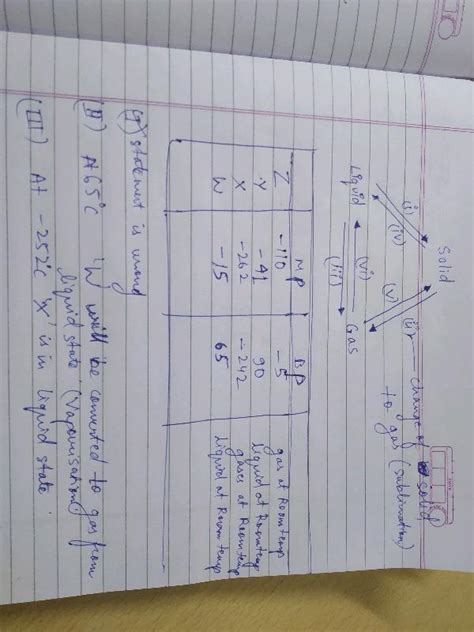 Solid
(i)
(iv)
(v)
(ii) — Change of solid
to gas (sublimation)
Liquid
(vi)
(iii)
Gas
MP BP
Z -110 -5 gas at Roomtemp
Y -41 90 liquid at Roomtemp
X -262 -242 gases at Roomtemp
W -15 65 liquid at Roomtemp
(I) statement is wrong
(II) At 65°C 'W' will be converted to gas from
liquid state. (Vapourisation)
(III) At -252°C 'X' is in liquid state.